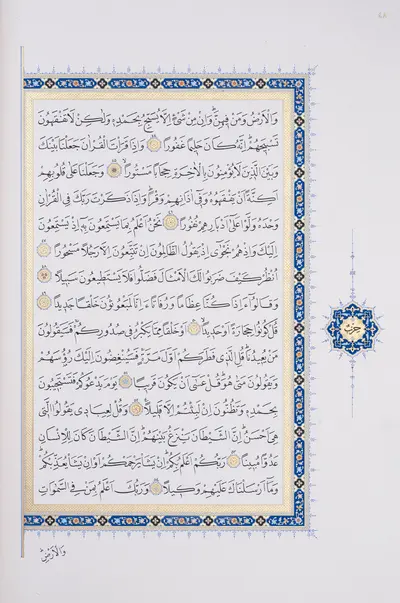 وَالْاَرْضُ وَمَنْ فٖيهِنَّ وَاِنْ مِنْ شَيْءٍ اِلَّا يُسَبِّحُ بِحَمْدِهٖ وَلٰكِنْ لَا تَفْقَهُونَ
تَسْبٖيحَهُمْ اِنَّهُ كَانَ حَلٖيمًا غَفُورًا وَاِذَا قَرَأْتَ الْقُرْاٰنَ جَعَلْنَا بَيْنَكَ
وَبَيْنَ الَّذٖينَ لَا يُؤْمِنُونَ بِالْاٰخِرَةِ حِجَابًا مَسْتُورًا وَجَعَلْنَا عَلٰى قُلُوبِهِمْ
اَكِنَّةً اَنْ يَفْقَهُوهُ وَفٖى اٰذَانِهِمْ وَقْرًا وَاِذَا ذَكَرْتَ رَبَّكَ فِى الْقُرْاٰنِ
وَحْدَهُ وَلَّوْا عَلٰى اَدْبَارِهِمْ نُفُورًا نَحْنُ اَعْلَمُ بِمَا يَسْتَمِعُونَ بِهٖ اِذْ يَسْتَمِعُونَ
اِلَيْكَ وَاِذْ هُمْ نَجْوٰى اِذْ يَقُولُ الظَّالِمُونَ اِنْ تَتَّبِعُونَ اِلَّا رَجُلًا مَسْحُورًا
اُنْظُرْ كَيْفَ ضَرَبُوا لَكَ الْاَمْثَالَ فَضَلُّوا فَلَا يَسْتَطٖيعُونَ سَبٖيلًا
وَقَالُوا ءَاِذَا كُنَّا عِظَامًا وَرُفَاتًا ءَاِنَّا لَمَبْعُوثُونَ خَلْقًا جَدٖيدًا
قُلْ كُونُوا حِجَارَةً اَوْ حَدٖيدًا اَوْ خَلْقًا مِمَّا يَكْبُرُ فٖى صُدُورِكُمْ فَسَيَقُولُونَ
مَنْ يُعٖيدُنَا قُلِ الَّذٖى فَطَرَكُمْ اَوَّلَ مَرَّةٍ فَسَيُنْغِضُونَ اِلَيْكَ رُؤُسَهُمْ
وَيَقُولُونَ مَتٰى هُوَ قُلْ عَسٰى اَنْ يَكُونَ قَرٖيبًا يَوْمَ يَدْعُوكُمْ فَتَسْتَجٖيبُونَ
بِحَمْدِهٖ وَتَظُنُّونَ اِنْ لَبِثْتُمْ اِلَّا قَلٖيلًا وَقُلْ لِعِبَادٖى يَقُولُوا الَّتٖى
هِىَ اَحْسَنُ اِنَّ الشَّيْطَانَ يَنْزَغُ بَيْنَهُمْ اِنَّ الشَّيْطَانَ كَانَ لِلْاِنْسَانِ
عَدُوًّا مُبٖينًا رَبُّكُمْ اَعْلَمُ بِكُمْ اِنْ يَشَأْ يَرْحَمْكُمْ اَوْ اِنْ يَشَأْ يُعَذِّبْكُمْ
وَمَا اَرْسَلْنَاكَ عَلَيْهِمْ وَكٖيلًا وَرَبُّكَ اَعْلَمُ بِمَنْ فِى السَّمٰوَاتِ
وَالْاَرْضِ
حزب